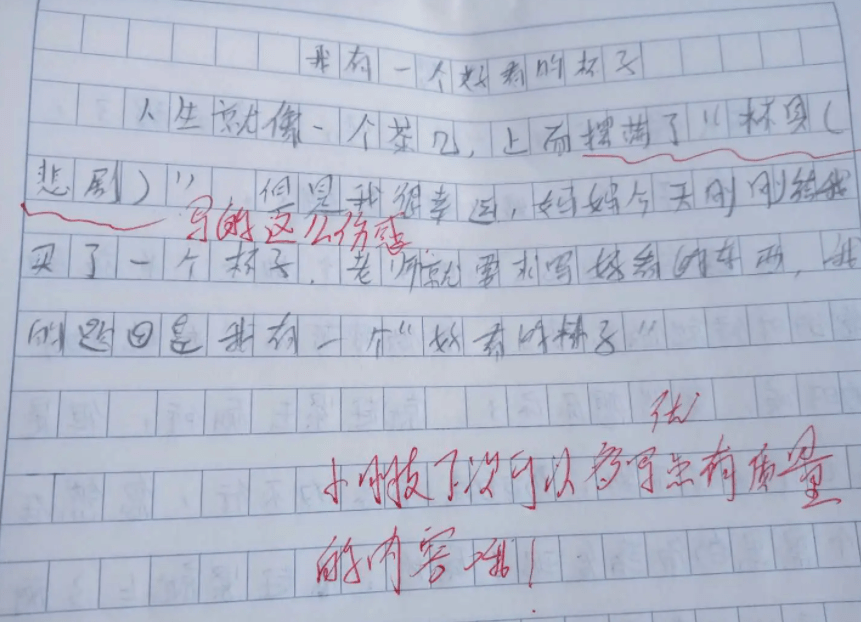 我有一个好看的杯子
人生就像一个茶几，上面摆满了“杯具（
悲剧）”但是我很幸运，妈妈今天刚刚给我
写的这么伤感
买了一个杯子，老师就要求写好看的东西，我
的题目是我有一个“好看的杯子”
优
下次可以多写点有质量
的内容哦！